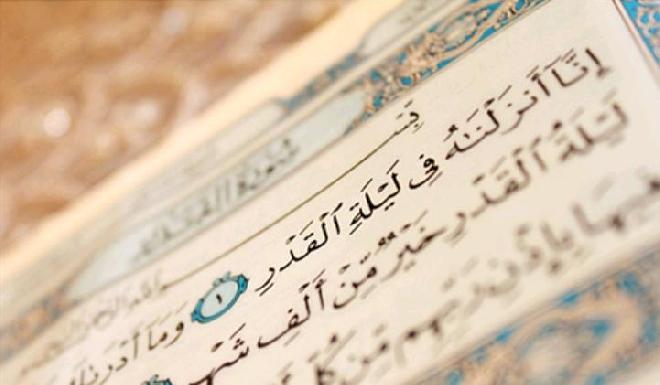 سُورَةُ القَدْرِ
إِنَّآ أَنزَلْنَٰهُ فِى لَيْلَةِ ٱلْقَدْرِ ١ وَمَآ أَدْرَىٰكَ
لَيْلَةُ ٱلْقَدْرِ خَيْرٌ مِّنْ أَلْفِ شَهْرٍ
فِيهَا بِإِذْنِ رَبِّهِم مِّن كُلِّ